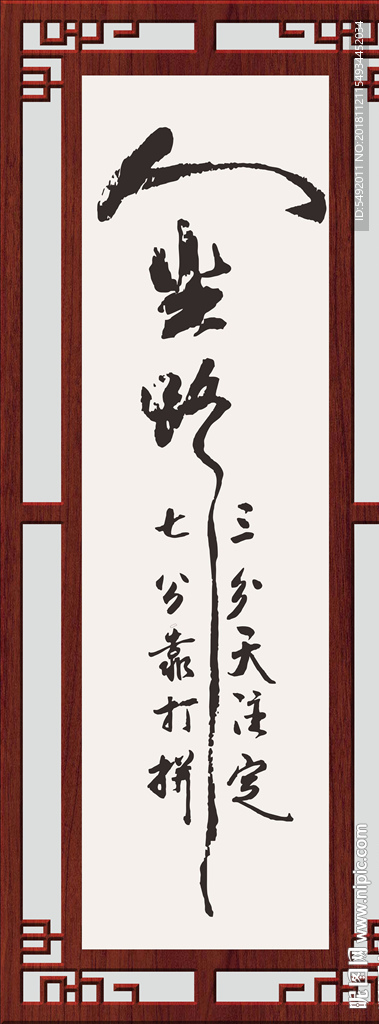 人生路
三分天注定
七分靠打拼
ID:5492011 NO:20181121154934452034
昵图网 www.nipic.com